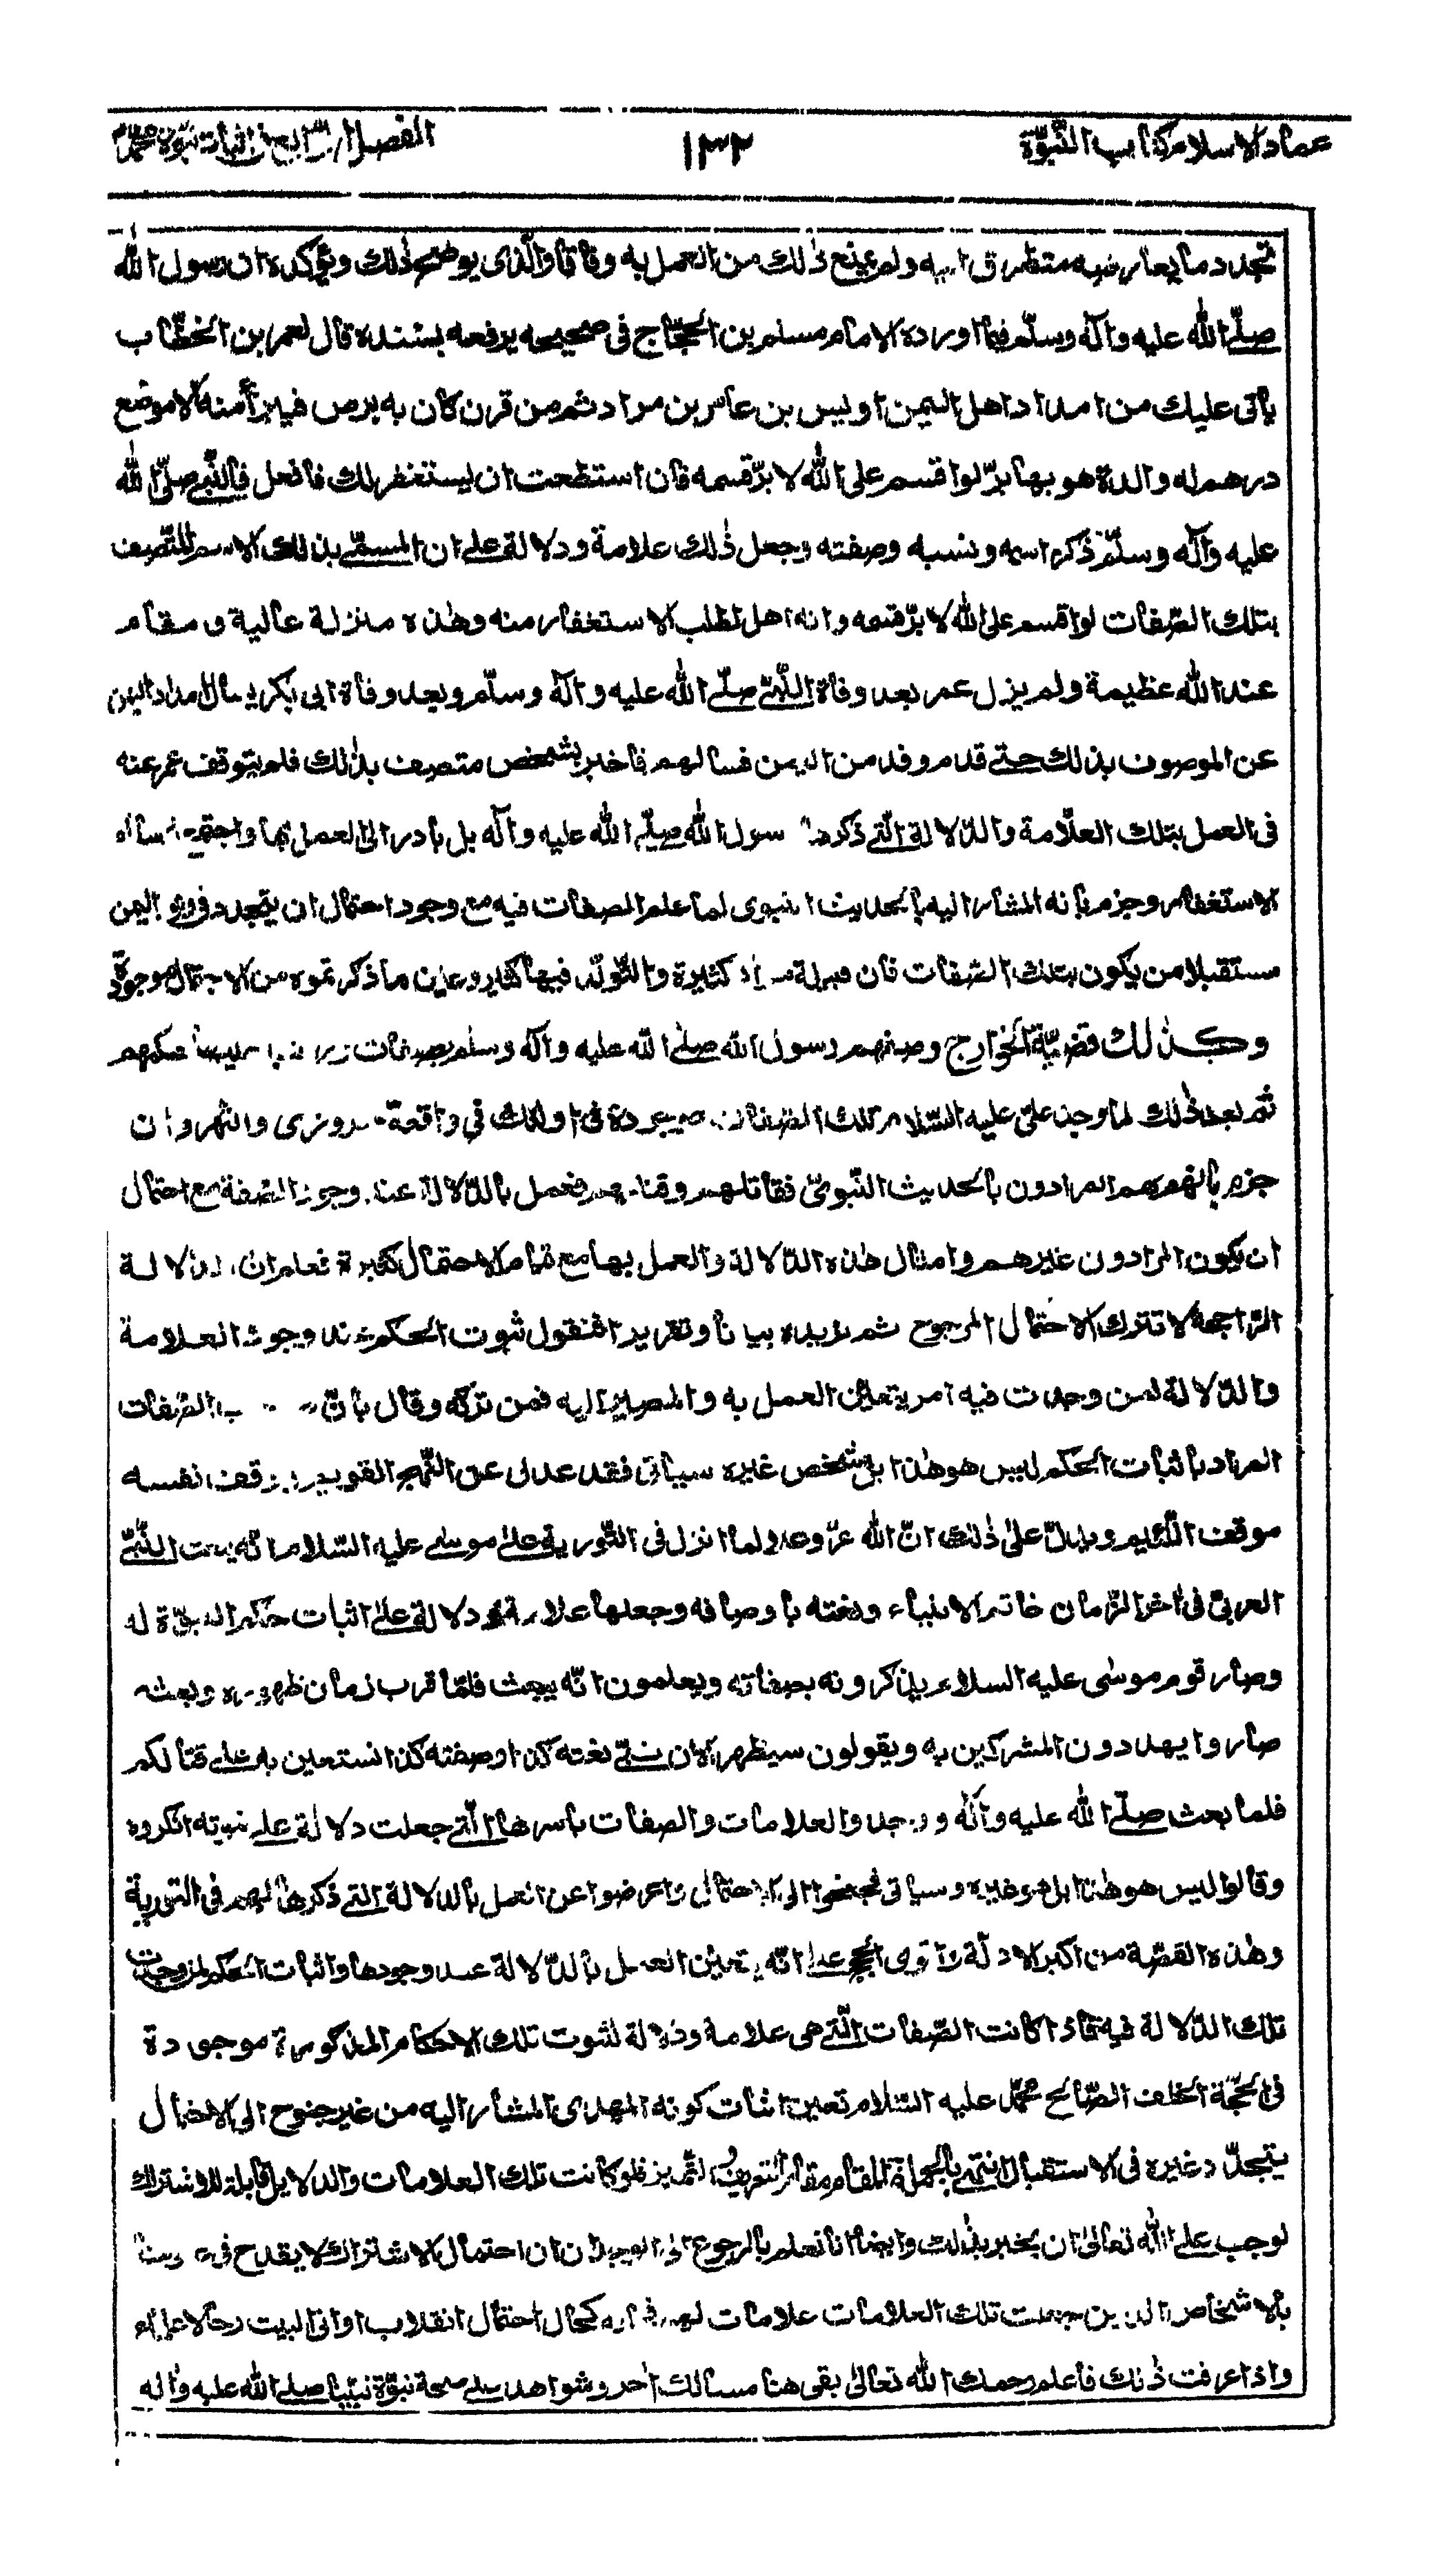 عماد الاسلام كتاب النبوّة ١٣٢ الفصل الرابع فى اثبات نبوّة محمّد
تجدد ما يعارضه متطرق اليه ولم يمنع ذلك من العمل به وفاقا والّذى يوضح ذلك ويؤكده ان رسول الله
صلّى الله عليه وآله وسلّم فيما اورده الامام مسلم بن الحجّاج فى صحيحه يرفعه بسنده قال لعمر بن الخطّاب
يأتى عليك من امداد اهل اليمن اويس بن عامر بن مراد ثم من قرن كان به برص فبرأ منه الا موضع
درهم له والدة هو بها برّ لو اقسم على الله لابرّ قسمه فان استطعت ان يستغفر لك فافعل فالنّبى صلّى الله
عليه وآله وسلّم ذكر اسمه ونسبه وصفته وجعل ذلك علامة ودلالة على ان المسمّى بذلك الاسم المتّصف
بتلك الصّفات لو اقسم على الله لابرّ قسمه وانه اهل لطلب الاستغفار منه وهذه منزلة عالية ومقام
عند الله عظيمة ولم يزل عمر بعد وفاة النّبىّ صلّى الله عليه وآله وسلّم وبعد وفاة ابى بكر يسأل امداد اليمن
عن الموصوف بذلك حتى قدم وفد من اليمن فسألهم فاخبر بشخص متصف بذلك فلم يتوقف عمر عنه
فى العمل بتلك العلّامة والدّلالة الّتى ذكرها رسول الله صلّى الله عليه وآله بل بادر الى العمل بها واجتمع
الاستغفار وجزم بانه المشار اليه بالحديث النبوى لما علم الصفات فيه مع وجود احتمال ان يتجدد فى وفد اليمن
مستقبلا من يكون بتلك الصّفات فان قبيلة مراد كثيرة والتّولّد فيها كثير وعين ما ذكرتموه من الاحتمال موجود
وكذلك قضيّة الخوارج وصفهم رسول الله صلى الله عليه وآله وسلم بصفات حكمهم
ثم بعد ذلك لما وجد علىّ عليه السّلام تلك الصّفات موجودة فى اولئك فى واقعة حرورى والنهروان
جزم بانهم هم المرادون بالحديث النّبوىّ فقاتلهم وقتلهم فعمل بالدّلالة عند وجود الصفة مع احتمال
ان يكون المرادون غيرهم وامثال هذه الدّلالة والعمل بها مع قيام الاحتمال كثيرة فعلم ان الدلالة
الرّاجحة لا تترك الاحتمال المرجوح ثم نزيده بيانا وتقريرا فنقول ثبوت الحكم عند وجود العلامة
والدّلالة لمن وجدت فيه امر يتعيّن العمل به والمصير اليه فمن تركه وقال بانّ الصّفات
المراد باثبات الحكم ليس هو هذا بل شخص غيره سيأتى فقد عدل عن النّهج القويم ووقف نفسه
موقف اللّئيم ويدلّ على ذلك انّ الله عزّ وعلا لما انزل فى التّورية على موسى عليه السّلام انّه يبعث النّبىّ
العربىّ فى آخر الزّمان خاتم الانبياء ونعته باوصافه وجعلها علامة ودلالة على اثبات حكم النبوّة له
وصار قوم موسى عليه السلام يذكرونه بصفاته ويعلمون انّه يبعث فلمّا قرب زمان ظهوره وبعثه
صاروا يهددون المشركين به ويقولون سيظهر الآن نبىّ نعته كذا وصفته كذا نستعين به على قتالكم
فلما بعث صلّى الله عليه وآله ووجدوا العلامات والصفات باسرها الّتى جعلت دلالة على نبوته انكروه
وقالوا ليس هو هذا بل هو غيره وسيأتى فجنحوا الى الاحتمال واعرضوا عن العمل بالدلالة التى ذكرها لهم فى التورية
وهذه القصّة من اكبر الادلّة واقوى الحجج على انّه يتعيّن العمل بالدّلالة عند وجودها واثبات الحكم لمن وجدت
تلك الدّلالة فيه فاذا كانت الصّفات الّتى هى علامة ودلالة لثبوت تلك الاحكام المذكورة موجودة
فى الحجّة الخلف الصّالح محمّد عليه السّلام تعين اثبات كونه المهدى المشار اليه من غير جنوح الى الاحتمال
يتجدّد غيره فى الاستقبال انتهى بالجملة المقام مقام التعريف والتّميز فلو كانت تلك العلامات والدلايل قابلة للاشتراك
لوجب على الله تعالى ان يخبر بذلك وايضا انا نعلم بالرجوع الى الوجدان ان احتمال الاشتراك لا يقدح فى
بالاشخاص الذين جعلت تلك العلامات علامات لهم كحال احتمال انقلاب اوانى البيت رجالا
واذا عرفت ذلك فاعلم رحمك الله تعالى بقى هنا مسالك اخر وشواهد على صحة نبوّة نبيّنا صلى الله عليه وآله